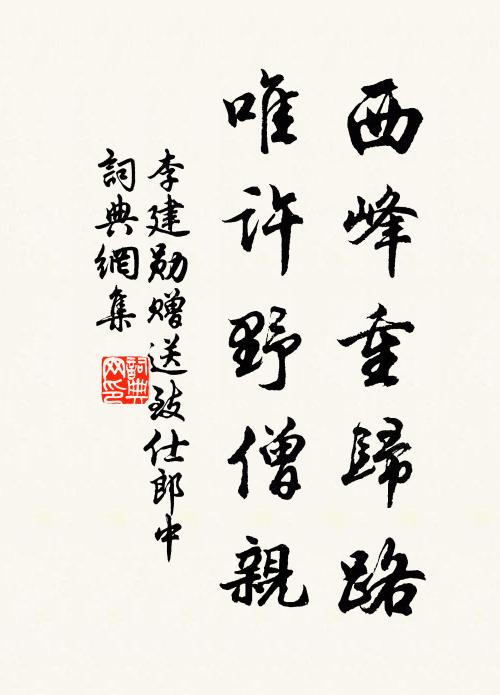 西峰重歸路
唯許野僧親
李建勛贈送致仕郎中
詞典網集
詞典網印